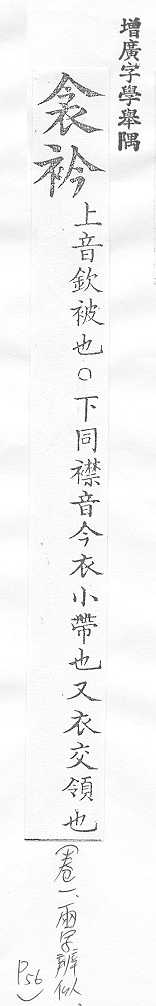 增廣字學舉隅
衾衿上音欽被也○下同襟音今衣小帶也又衣交領也
(卷一、兩字辨似 P56)